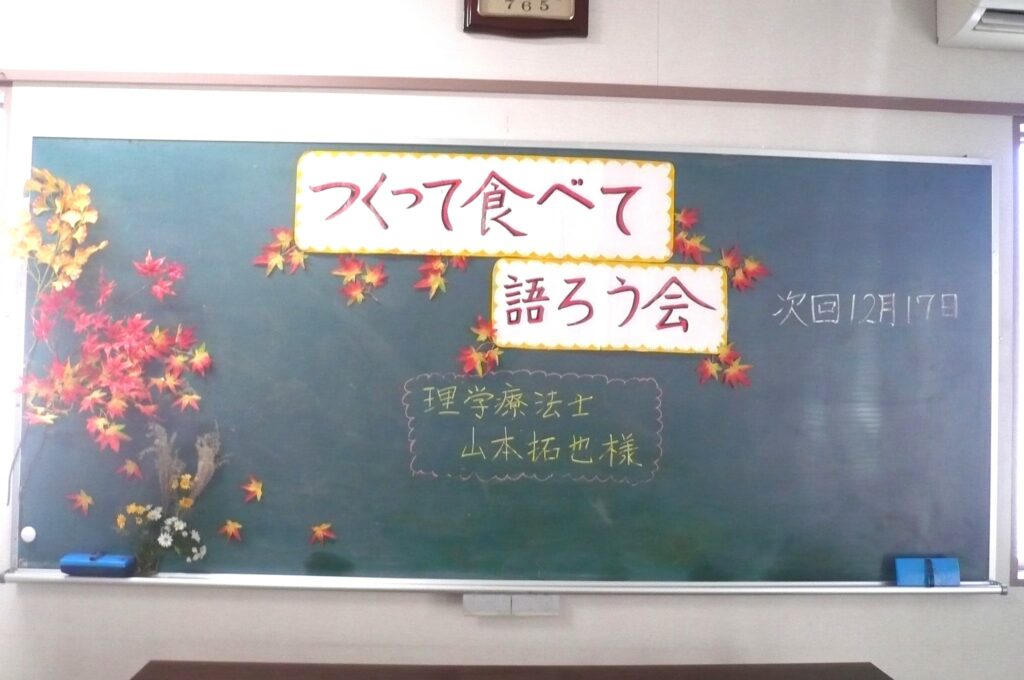 765
つくって食べて
語ろう会
次回12月17日
理学療法士
山本拓也様